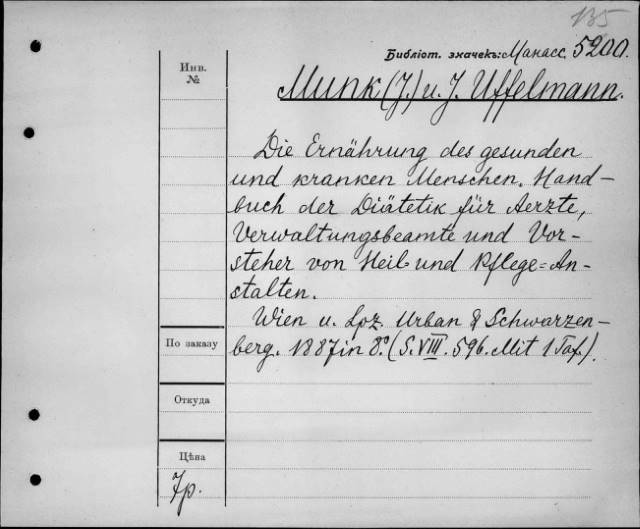 135
Библіот. значекъ: Манасс. 5200.
Инв.
№
Munk (J.) u. J. Uffelmann.
Die Ernährung des gesunden
und kranken Menschen. Hand-
buch der Diätetik für Aerzte,
Verwaltungsbeamte und Vor-
steher von Heil- und Pflege=An-
stalten.
Wien u. Lpz. Urban & Schwarzen-
По заказу
berg. 1887 in 8.° (S. VIII. 596. Mit 1 Taf.).
Откуда
Цѣна
7р.